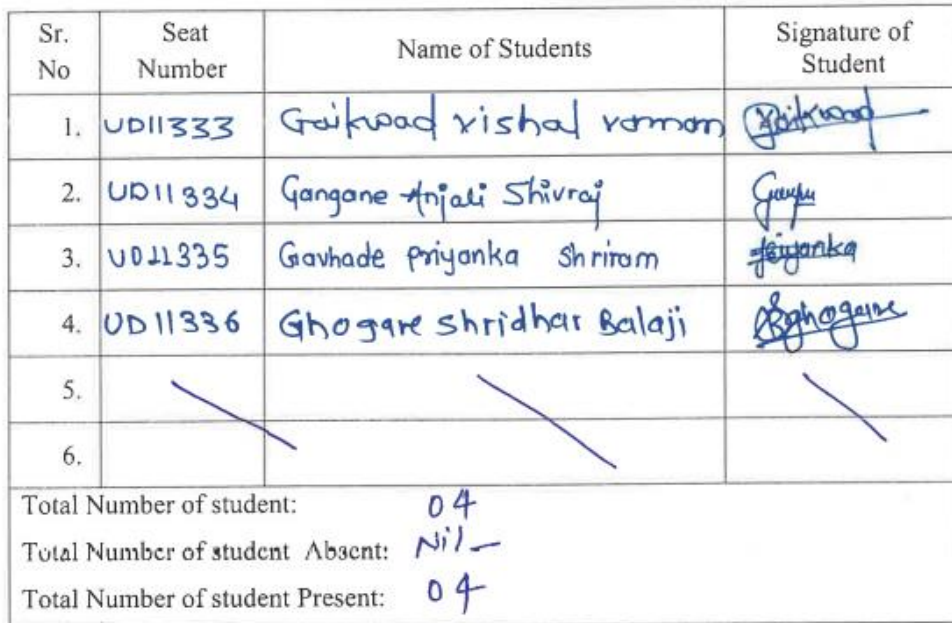 Sr. No Seat Number Name of Students Signature of Student
1. UD11333 Gaikwad vishal vaman Gaikwad
2. UD11334 Gangane Anjali Shivraj
3. UD11335 Gavhade priyanka shriram Priyanka
4. UD11336 Ghogare shridhar Balaji SBghogare
5.
6.
Total Number of student: 04
Total Number of student Absent: Nil
Total Number of student Present: 04